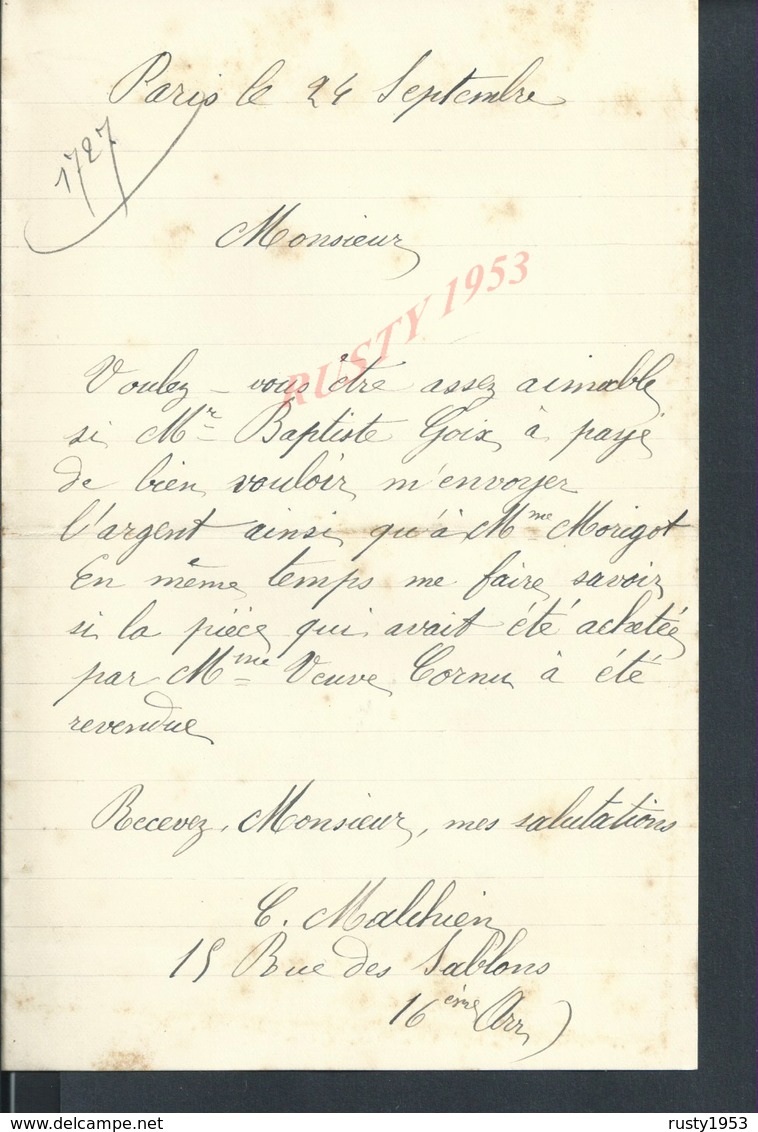 Paris le 24 Septembre
1727
Monsieur
RUSTY 1953
Voulez-vous être assez aimable
si Mr Baptiste Goix à payé
de bien vouloir m'envoyer
l'argent ainsi qu'à Mme Morigot
En même temps me faire savoir
si la pièce qui avait été achetée
par Mme Veuve Cornu à été
revendue
Recevez, Monsieur, mes salutations
C. Malchien
15 Rue des Sablons
16ème Arr)
delcampe.net
rusty1953